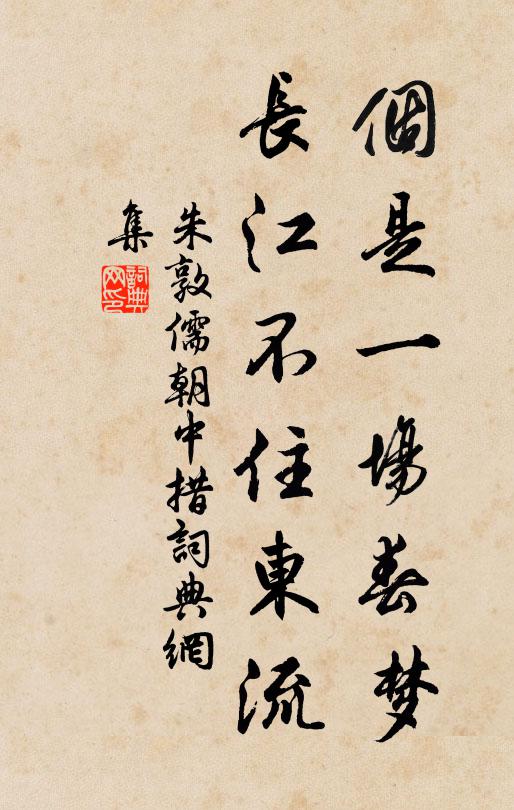 個是一場春梦
長江不住東流
朱敦儒朝中措詞典網
集
詞典网印